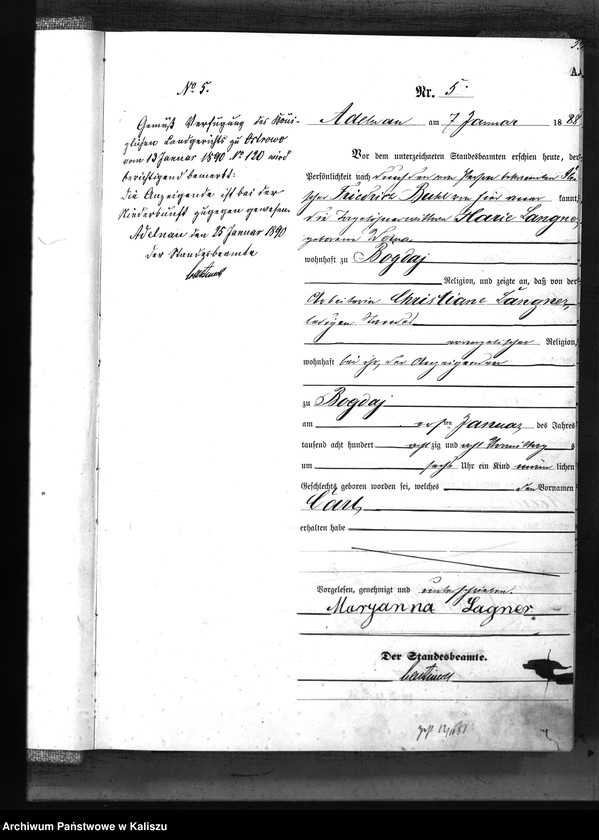 No 5.
Gemäß Verfügung des König-
lichen Landgerichts zu Ostrowo
vom 13 Januar 1890 No 120 wird
berichtigend bemerkt:
die Anzeigende ist bei der
Niederkunft zugegen gewesen.
Adelnau den 25 Januar 1890
der Standesbeamte
A.
Nr. 5.
Adelnau am 7 Januar 1888
Vor dem unterzeichneten Standesbeamten erschien heute, der
Persönlichkeit nach durch den von Person bekannten
Friedrich tannt,
die Marie Langner
geborene
wohnhaft zu Bogdaj
Religion, und zeigte an, daß von der
Arbeiterin Christiane Langner,
ledigen Standes
evangelischer Religion,
wohnhaft bei ihr, der Anzeigenden
zu Bogdaj
am ersten Januar des Jahres
tausend acht hundert achtzig und acht Vormittags
um sechs Uhr ein Kind männlichen
Geschlechts geboren worden sei, welches den Vornamen
Carl
erhalten habe
Vorgelesen, genehmigt und unterschrieben.
Maryanna Lagner
Der Standesbeamte.
Archiwum Państwowe w Kaliszu